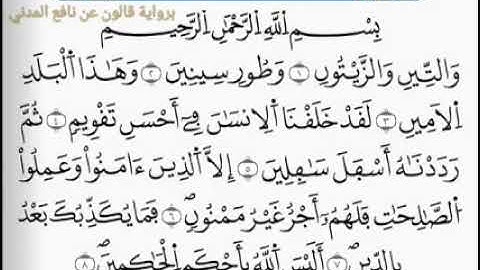 برواية قالون عن نافع المدني
بِسْمِ اللَّهِ الرَّحْمَٰنِ الرَّحِيمِ
وَالتِّينِ وَالزَّيْتُونِ ١ وَطُورِ سِينِينَ ٢ وَهَٰذَا الْبَلَدِ
اِلَامِينِ ٣ لَقَدْ خَلَقْنَا اَلِانسَٰنَ فِے أَحْسَنِ تَقْوِيمٍ ٤ ثُمَّ
رَدَدْنَٰهُ أَسْفَلَ سَٰفِلِينَ ٥ إِلَّا الَّذِينَ ءَامَنُوا وَعَمِلُوا
الصَّٰلِحَٰتِ فَلَهُمْ أَجْرٌ غَيْرُ مَمْنُونٍ ٦ فَمَا يُكَذِّبُكَ بَعْدُ
بِالدِّينِ ٧ أَلَيْسَ اللَّهُ بِأَحْكَمِ الْحَٰكِمِينَ ٨